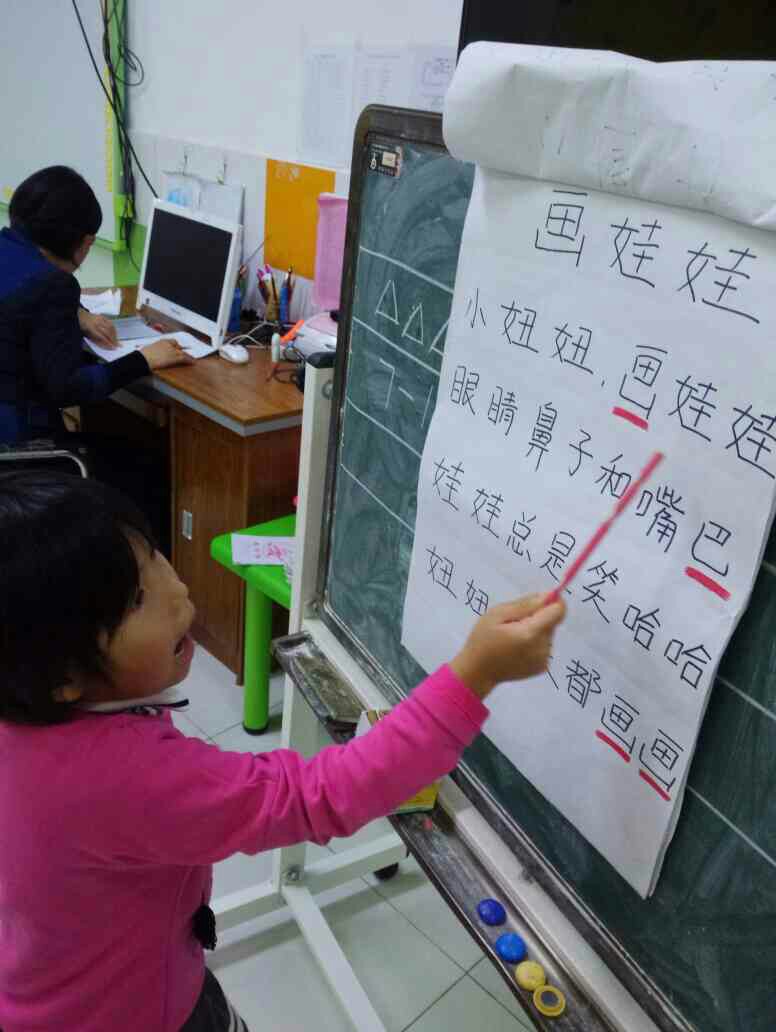 画娃娃
小妞妞，画娃娃
眼睛鼻子和嘴巴
娃娃总是笑哈哈
妞妞都画画
7-1